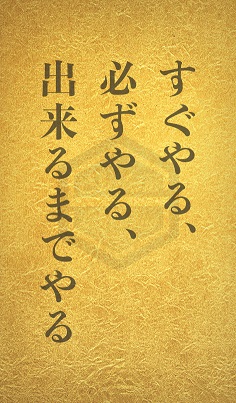 すぐやる、
必ずやる、
出来るまでやる